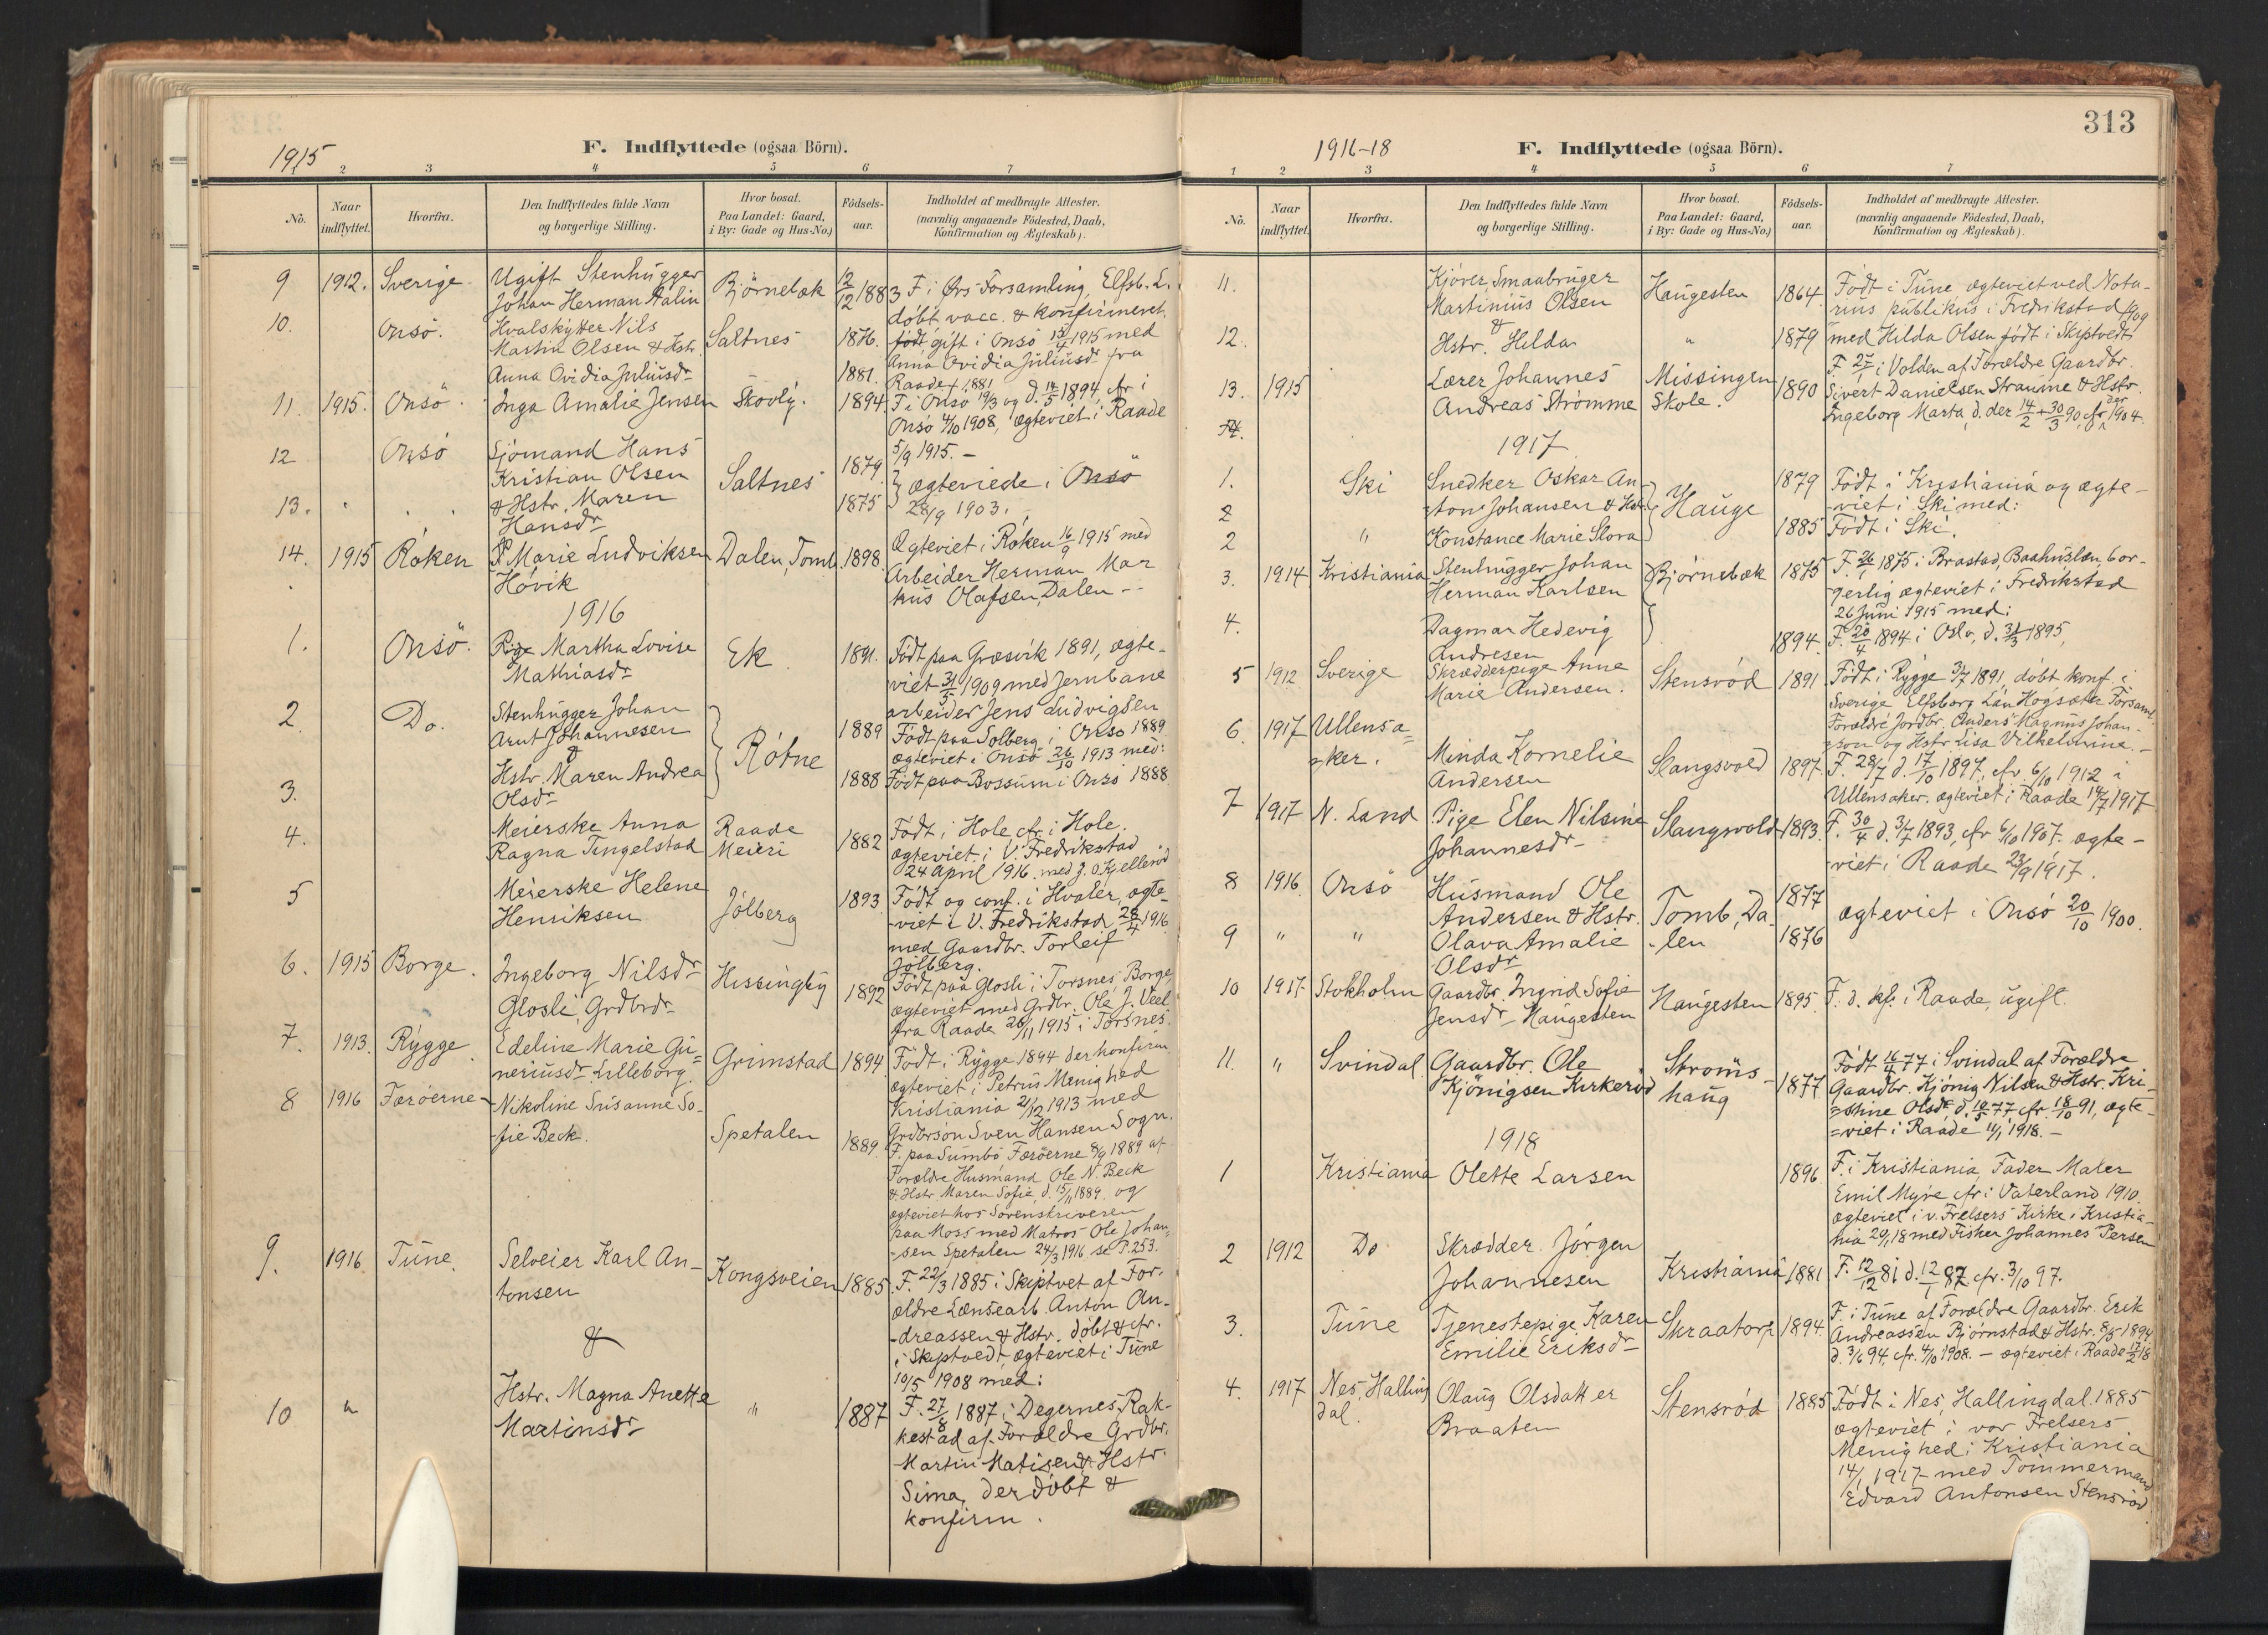 1915
F. Indflyttede (ogsaa Börn).
1 2 3 4 5 6 7
No. Naar indflyttet. Hvorfra. Den Indflyttedes fulde Navn og borgerlige Stilling. Hvor bosat. Paa Landet: Gaard, i By: Gade og Hus-No.) Födsels-aar. Indholdet af medbragte Attester. (navnlig angaaende Födested, Daab, Konfirmation og Ægteskab).
9 1912. Sverige. Ugift Stenhugger
Johan Herman Aalin Björnebæk 12/12 1883 F. i Örs Forsamling, Elfsb. L.
döbt, vacc. & konfirmeret.
10. Onsö. Hvalskytter Nils
Martin Olsen & Hstr. Saltnes 1876. født gift i Onsö 15/4 1915 med
Anna Ovidia Juliusdr 1881. Anna Ovidia Juliusdr fra
Raade f. 1881
11. 1915. Onsö. Inga Amalie Jensen Skovly. 1894 F i Onsö 19/3 og d. 14/5 1894, cfr i
Onsö 4/10 1908, ægteviet i Raade
5/9 1915. -
12 Onsö Sjömand Hans
Kristian Olsen Saltnes 1879 ægteviede i Onsö
13. & Hstr. Maren
Hansdr 1875 28/9 1903.
14. 1915 Röken Marie Ludviksen
Hövik Dalen, Tomb. 1898. Ægteviet i Röken 16/9 1915 med
Arbeider Herman Mar
kus Olafsen, Dalen --
1916
1. Onsö. Pige Martha Lovise
Mathiasdr Ek. 1891. Födt paa Græsvik 1891, ægte-
viet 31/5 1909 med Jernbane
arbeider Jens Ludvigsen
2 Do. Stenhugger Johan
Arnt Johannesen Rötne 1889 Födt paa Solberg i Onsö 1889
ægteviet i Onsö 26/10 1913 med:
&
3. Hstr. Maren Andrea
Olsdr 1888 Födt paa Bossum i Onsö 1888
4. Meierske Anna
Ragna Tingelstad Raade
Meieri 1882 Födt i Hole, cfr. i Hole.
ægteviet i V. Fredrikstad
24 April 1916. med J. O. Kjelleröd
5 Meierske Helene
Henriksen Jölberg 1893 Födt og conf. i Hvaler, ægte-
-viet i V. Fredrikstad 26/4 1916
med Gaardbr. Torleif
Jölberg.
6. 1915 Borge. Ingeborg Nilsdr
Glosli, Grdbrdr Hissingby 1892 Födt paa Glosli i Torsnes, Borge,
ægteviet med Grdbr. Ole J. Veel
fra Raade 26/11 1915 i Torsnes.
7. 1913. Rygge Edeline Marie Gu=
neriusdr Lilleborg. Grimstad 1894 Födt i Rygge 1894 der konfirm.
ægteviet i Petrus Menighed
Kristiania 21/12 1913 med
Grdbrsön Sven Hansen Sogn.
8 1916 Færöerne Nikoline Susanne So-
-fie Beck. Spetalen 1889. F. paa Sumbö Færöerne 8/9 1889 af
Forældre Husmand Ole N. Beck
& Hstr Maren Sofie, d. 15/11 1889. og
ægteviet hos Sorenskriveren
paa Moss med Matros Ole Johan-
-sen Spetalen 24/3 1916 se P. 253.
9. 1916 Tune. Selveier Karl An-
tonsen Kongsveien 1885. F. 22/3 1885 i Skiptvet af For-
ældre Lænsearb. Anton An-
-dreassen & Hstr. döbt & cfr.
& i Skiptvedt, ægteviet i Tune
10/5 1908 med:
10 " Hstr. Magna Anette
Martinsdr " 1887 F. 27/8 1887 i Degernes, Rak-
kestad af Forældre Grdbr.
Martin Matisen & Hstr.
Sima, der döbt &
konfirm.
313
1916-18
F. Indflyttede (ogsaa Börn).
1 2 3 4 5 6 7
No. Naar indflyttet. Hvorfra. Den Indflyttedes fulde Navn og borgerlige Stilling. Hvor bosat. Paa Landet: Gaard, i By: Gade og Hus-No.) Födsels-aar. Indholdet af medbragte Attester. (navnlig angaaende Födested, Daab, Konfirmation og Ægteskab).
11. Kjörer, Smaabruger
Martinius Olsen Haugesten 1864. Födt i Tune ægteviet ved Nota-
rius publikus i Fredrikstad
&
12. Hstr. Hilda " 1879 med Hilda Olsen født i Skiptvedt
13. 1915 Lærer Johannes
Andreas Strømme Missingen
Skole. 1890 F. 27/1 i Volden af Forældre Gaardbr.
Sivert Danielsen Straume & Hstr.
Ingeborg Marta, d. der 14/2 + 30/3 90, cfr. der 1904.
14.
1917
1. Ski Snedker Oskar An-
ton Johansen & Hstr. Hauge 1879 Födt i Kristiania og ægte-
viet i Ski med:
2
2 " Konstance Marie Slora 1885 Födt i Ski.
3. 1914 Kristiania Stenhugger Johan
Herman Karlsen Björnebæk 1875 F. 26/1 1875 i Brastad, Baahuslæn, bor-
gerlig ægteviet i Fredrikstad
26 Juni 1915 med:
4. Dagmar Hedevig
Andresen 1894. F. 20/4 1894 i Oslo, d. 31/3 1895,
5 1912 Sverige Skrædderpige Anne
Marie Andersen. Stensröd 1891 Födt i Rygge 3/7 1891, döbt konf. i
Sverige Elfsborg Län Högsäter Forsaml.
Forældre Jordbr. Anders Magnus Johan-
son og Hstr Lisa Vilhelmine. -
6. 1917 Ullensa=
=ker. Minda Kornelie
Andersen Slangsvold 1897. F. 28/7 d. 17/10 1897, cfr. 6/10 1912 i
Ullensaker. ægteviet i Raade 14/7 1917
7 1917 N. Land Pige Elen Nilsine
Johannesdr Slangsvold 1893. F. 30/4 d. 3/7 1893, cfr 6/10 1907. ægte-
-viet i Raade 23/9 1917.
8 1916. Onsö Husmand Ole
Andersen & Hstr. Tomb, Da- 1877
ægteviet i Onsö 20/10 1900.
9 " " Olava Amalie
Olsdr -len 1876
10 1917 Stokholm Gaardbr. Ingrid Sofie
Jensdr Haugesten Haugesten 1895. F. d. kf. i Raade, ugift.
11. " Svindal Gaardbr. Ole
Kjönigsen Kirkeröd Ströms-
haug 1877 Födt 16/4 77 i Svindal af Forældre
Gaardbr. Kjönig Nilsen & Hstr. Kri-
=stine Olsdr d. 10/5 77 cfr. 18/10 91, ægte-
=viet i Raade 11/1 1918. -
1918
1 Kristiania Olette Larsen 1896. F. i Kristiania, Fader Maler
Emil Myre cfr i Vaterland 1910.
ægteviet i v. Frelsers Kirke i Kristia-
nia 20/1 18 med Fisker Johannes Persen
2 1912 Do Skrædder Jörgen
Johannesen Kristiania 1881 F. 12/12 81 d. 12/1 82 cfr. 3/10 97.
3. Tune Tjenestepige Karen
Emilie Eriksdr Skraatorp 1894. F. i Tune af Forældre Gaardbr. Erik
Andreassen Björnstad & Hstr. 8/5 1894
d. 3/6 94, cfr. 4/10 1908. - ægteviet i Raade 17/2 18
4. 1917 Nes, Halling
dal. Olaug Olsdatter
Braaten Stensröd 1885 Födt i Nes, Hallingdal. 1885
ægteviet i vor Frelsers
Menighed i Kristiania
14/1 1917 med Tømmermand
Edvard Antonsen Stensröd.